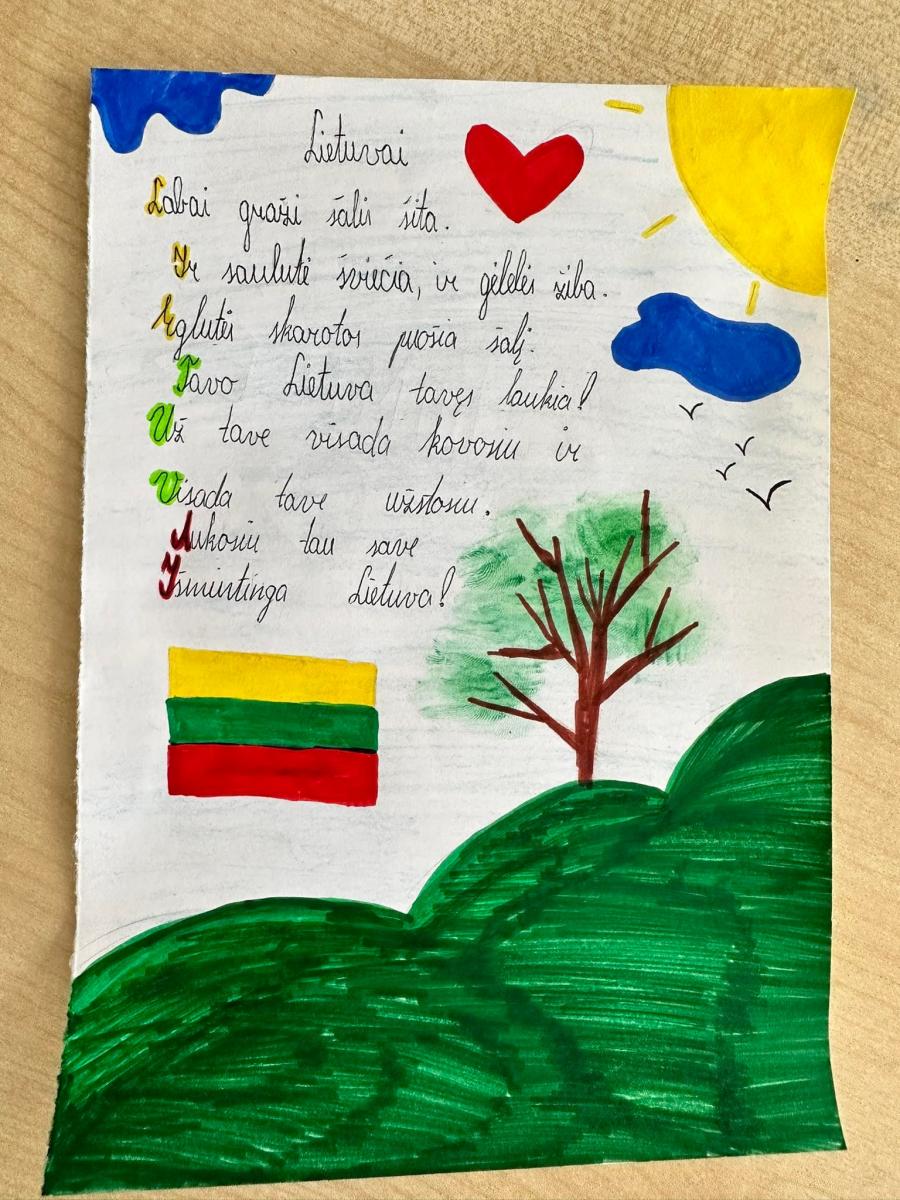 Lietuvai
Labai graži šalis šita.
Ir saulutė šviečia, ir gėlelės žiba.
Eglutės skarotos puošia šalį.
Tavo Lietuva tavęs laukia!
Už tave visada kovosiu ir
Visada tave užstosiu.
Aukosiu tau save
Išmintinga Lietuva!